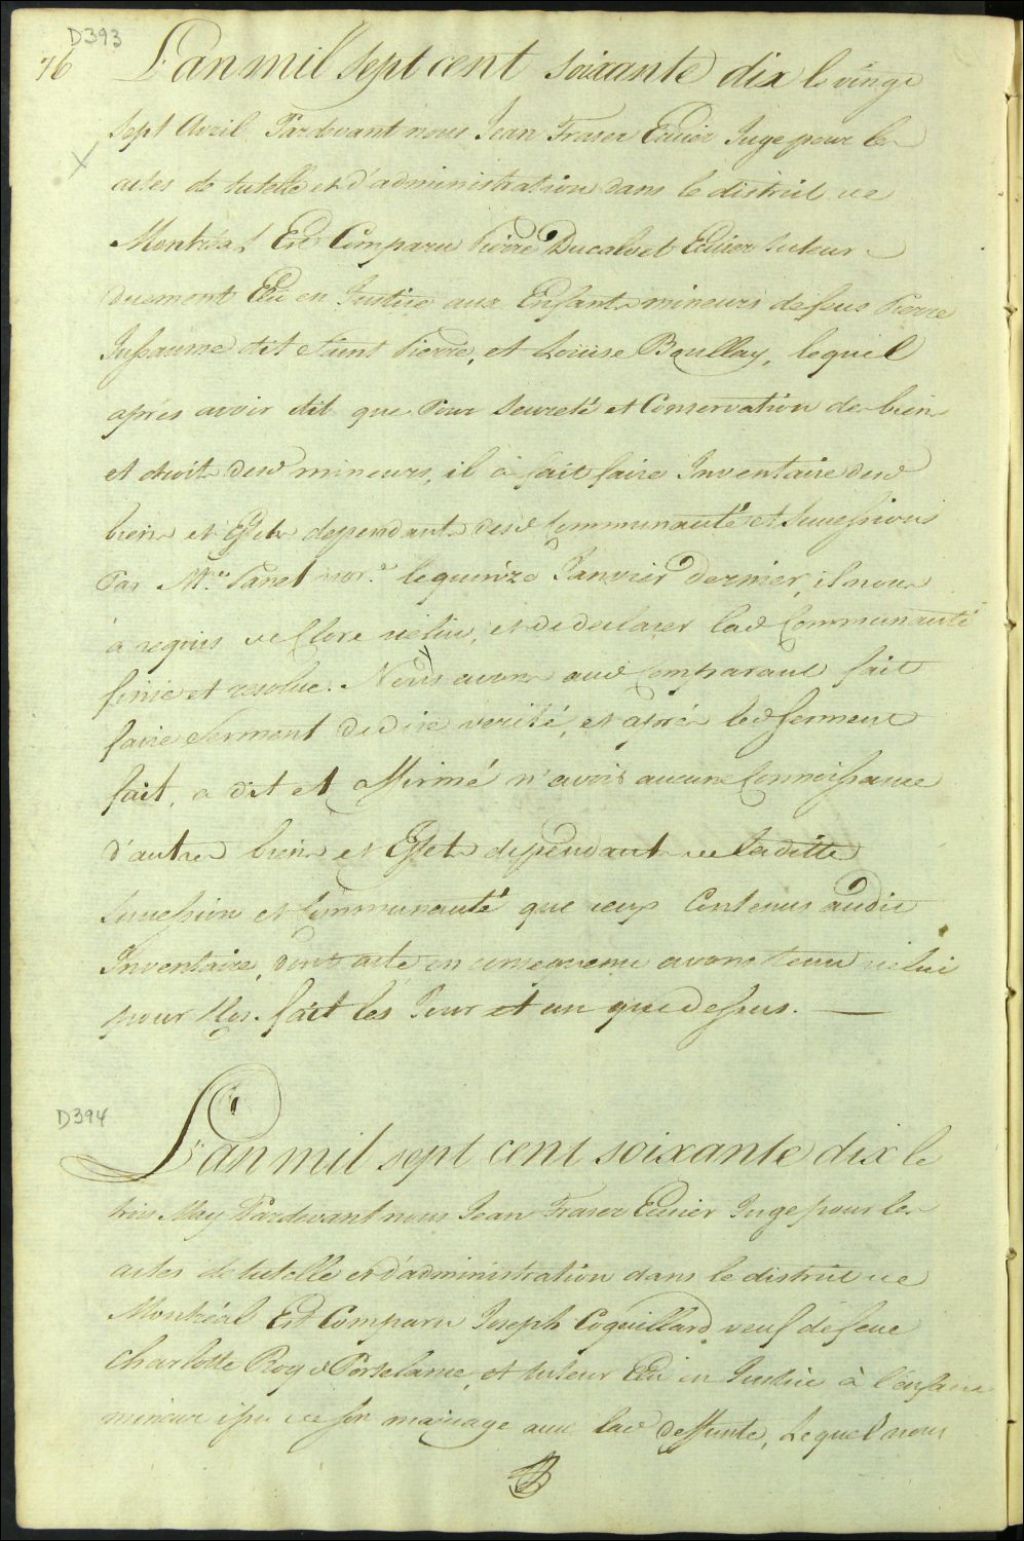 D393
76 L'an mil sept cent soixante dix le vingt
sept Avril Pardevant nous Jean Fraser Ecuier Juge pour les
actes de tutelle et d'administration dans le district de
Montréal Est Comparu Pierre Ducalvet Ecuier tuteur
duement Elu en Justice aux Enfants mineurs de feus Pierre
Jussaume dit Saint Pierre, et Louise Boullay, lequel
après avoir dit que Pour Seureté et Conservation des biens
et droits desd mineurs, il à fait faire Inventaire desd
biens et Effets dependants desd Communauté et Successions
Par Mre Panet nore le quinze Janvier dernier, il nous
à requis de Clore icelui, et de declarer lad Communauté
finie et resolue. Nous avons aud Comparant fait
faire Serment de dire verité, et après led Serment
fait, a dit et affirmé n'avoir aucune Connoissance
d'autres biens et Effets dependants de laditte
Succession et Communauté que ceux Contenus audit
Inventaire, dont acte en consequence avons tenu icelui
pour Clos. fait les Jour et an que dessus.
D394
L'an mil sept cent soixante dix le
trois May Pardevant nous Jean Fraser Ecuier Juge pour les
actes de tutelle et d'administration dans le district de
Montréal Est Comparu Joseph Coquillard veuf de feue
Charlotte Roy d Portelance, et tuteur Elu en Justice à l'enfant
mineur issu de son mariage avec lad deffunte, Lequel nous